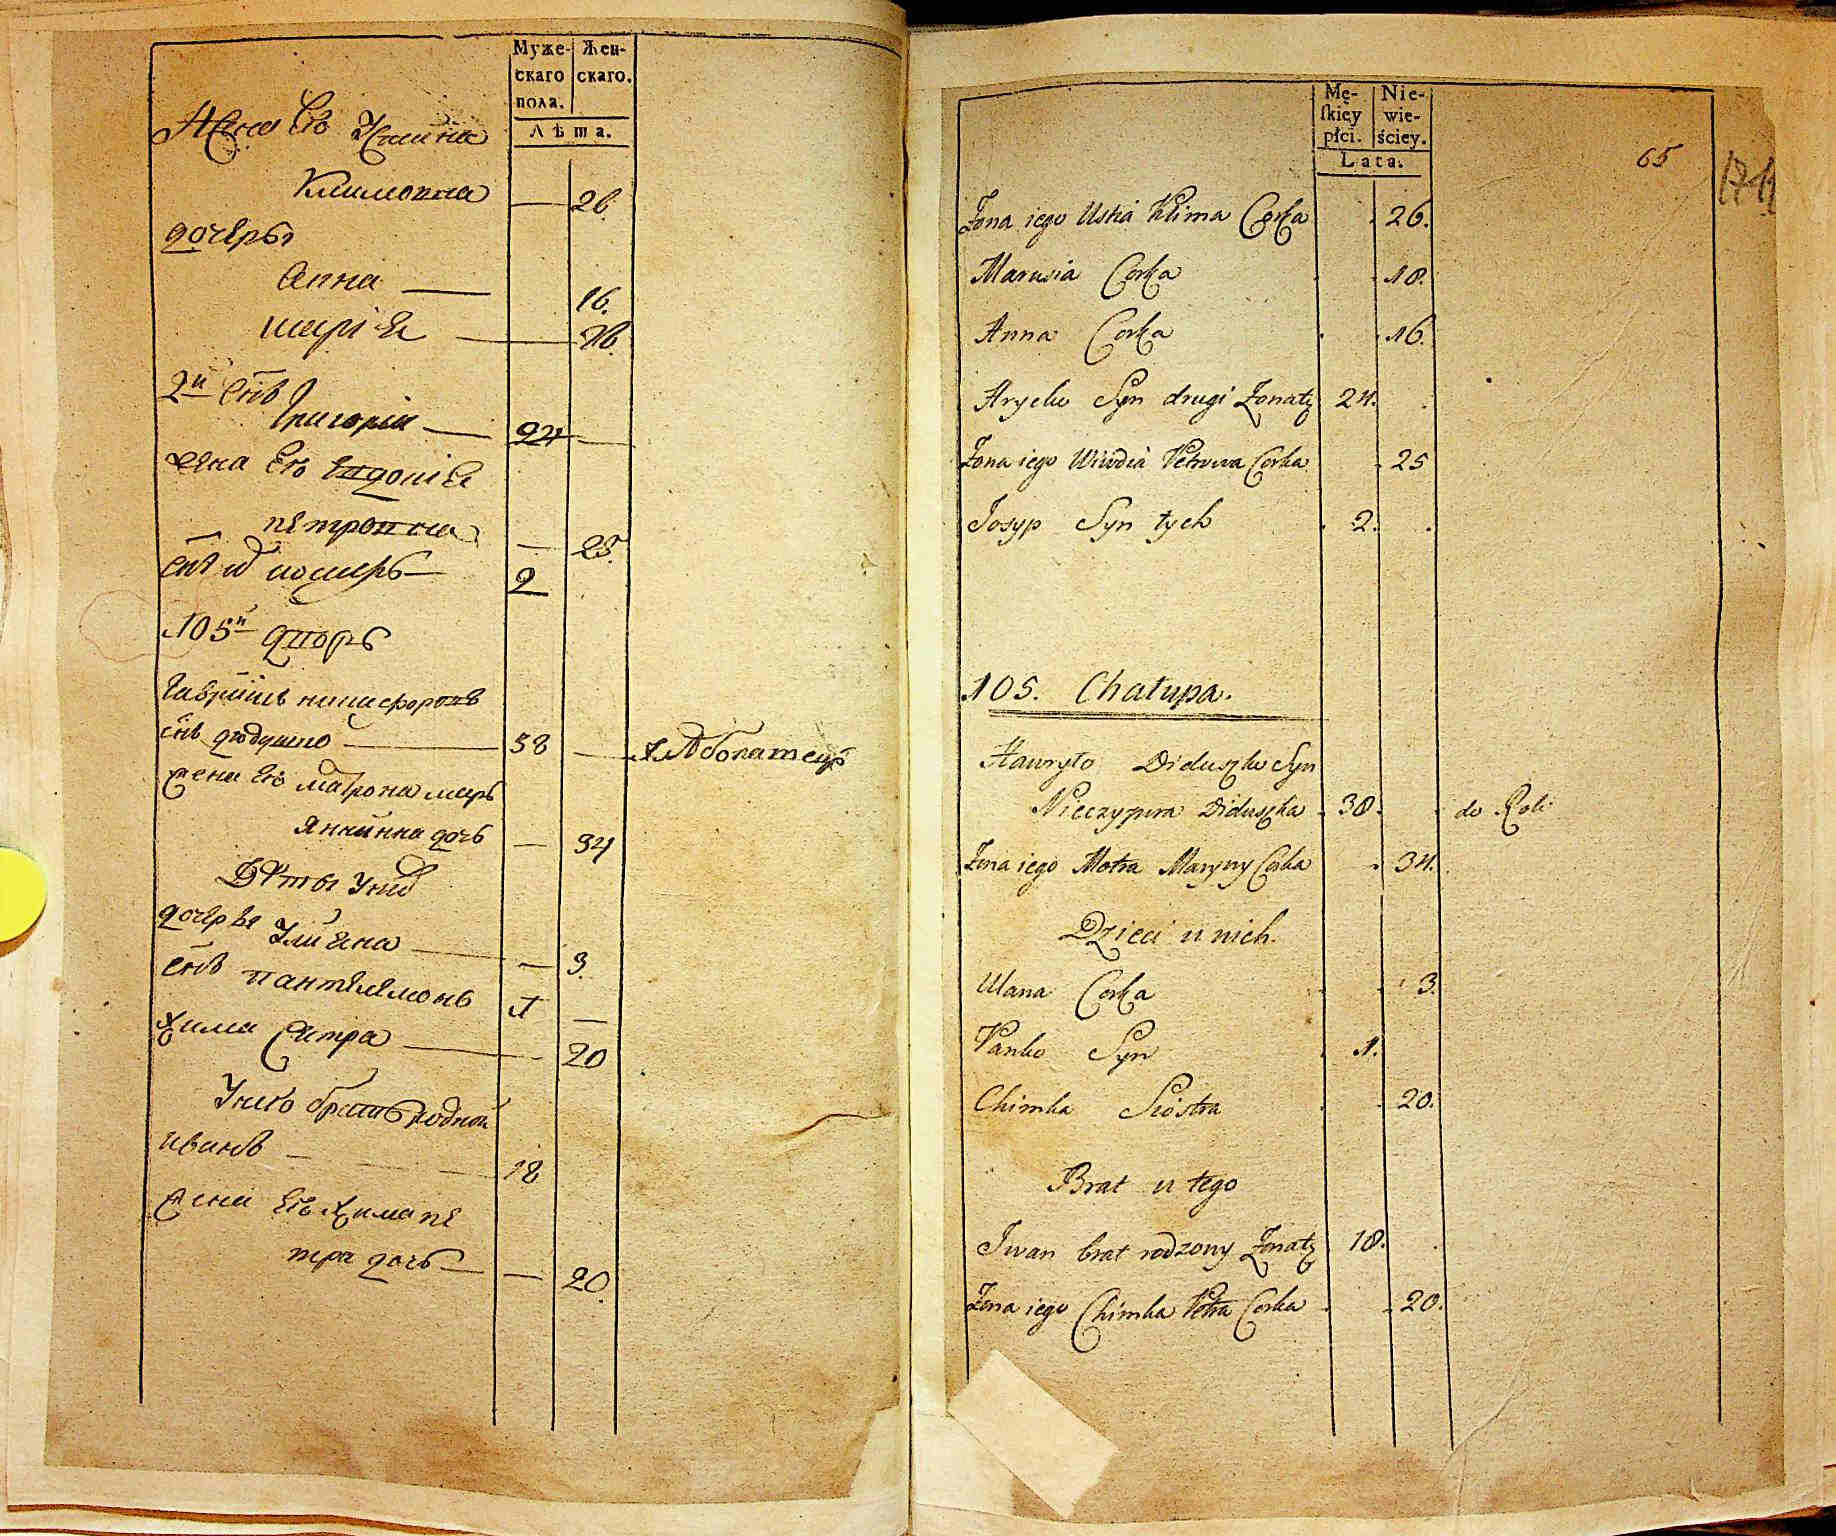 Муже-
скаго
пола.
Жен-
скаго.
Лѣта.
Жена Егѡ Устина
Климовна — 26.
дочеры
Анна — 16.
Марїя — 18.
2й Снъ
Григорїи — 24 —
жена Егѡ Евдокїя
петровна — 25.
Снъ их иосипъ — 2
105й дворъ
Гаврїилъ никифоровъ
снъ дѣдушко — 38 — хлѣбопашецъ
жена Егѡ Матрона марь
яннина дочь — 34
Дѣты У них
дочерья Улияна — 3.
Снъ пантелемонъ 1 —
Химa Сестра — 20
У него братъ родной
иванъ — 18
жена Егѡ Химa пе
тра дочь — 20.
Mę-
skiey
płci.
Nie-
wie-
ściey.
Lata.
65
Zona iego Ustia Klima Corka 26.
Marusia Corka 18.
Anna Corka 16.
Hryćko Syn drugi Zonaty 24.
Zona iego Wiwdia Petrowa Corka 25
Josyp Syn tych 2.
105. Chałupa.
Hawryło Diduszko Syn
Nieczypora Diduszka 38. do Roli
Zona iego Motra Maryny Corka 34.
Dzieci u nich.
Ulana Corka 3.
Panko Syn 1.
Chimka Siostra 20.
Brat u tego
Iwan brat rodzony Zonaty 18.
Zona iego Chimka Petra Corka 20.